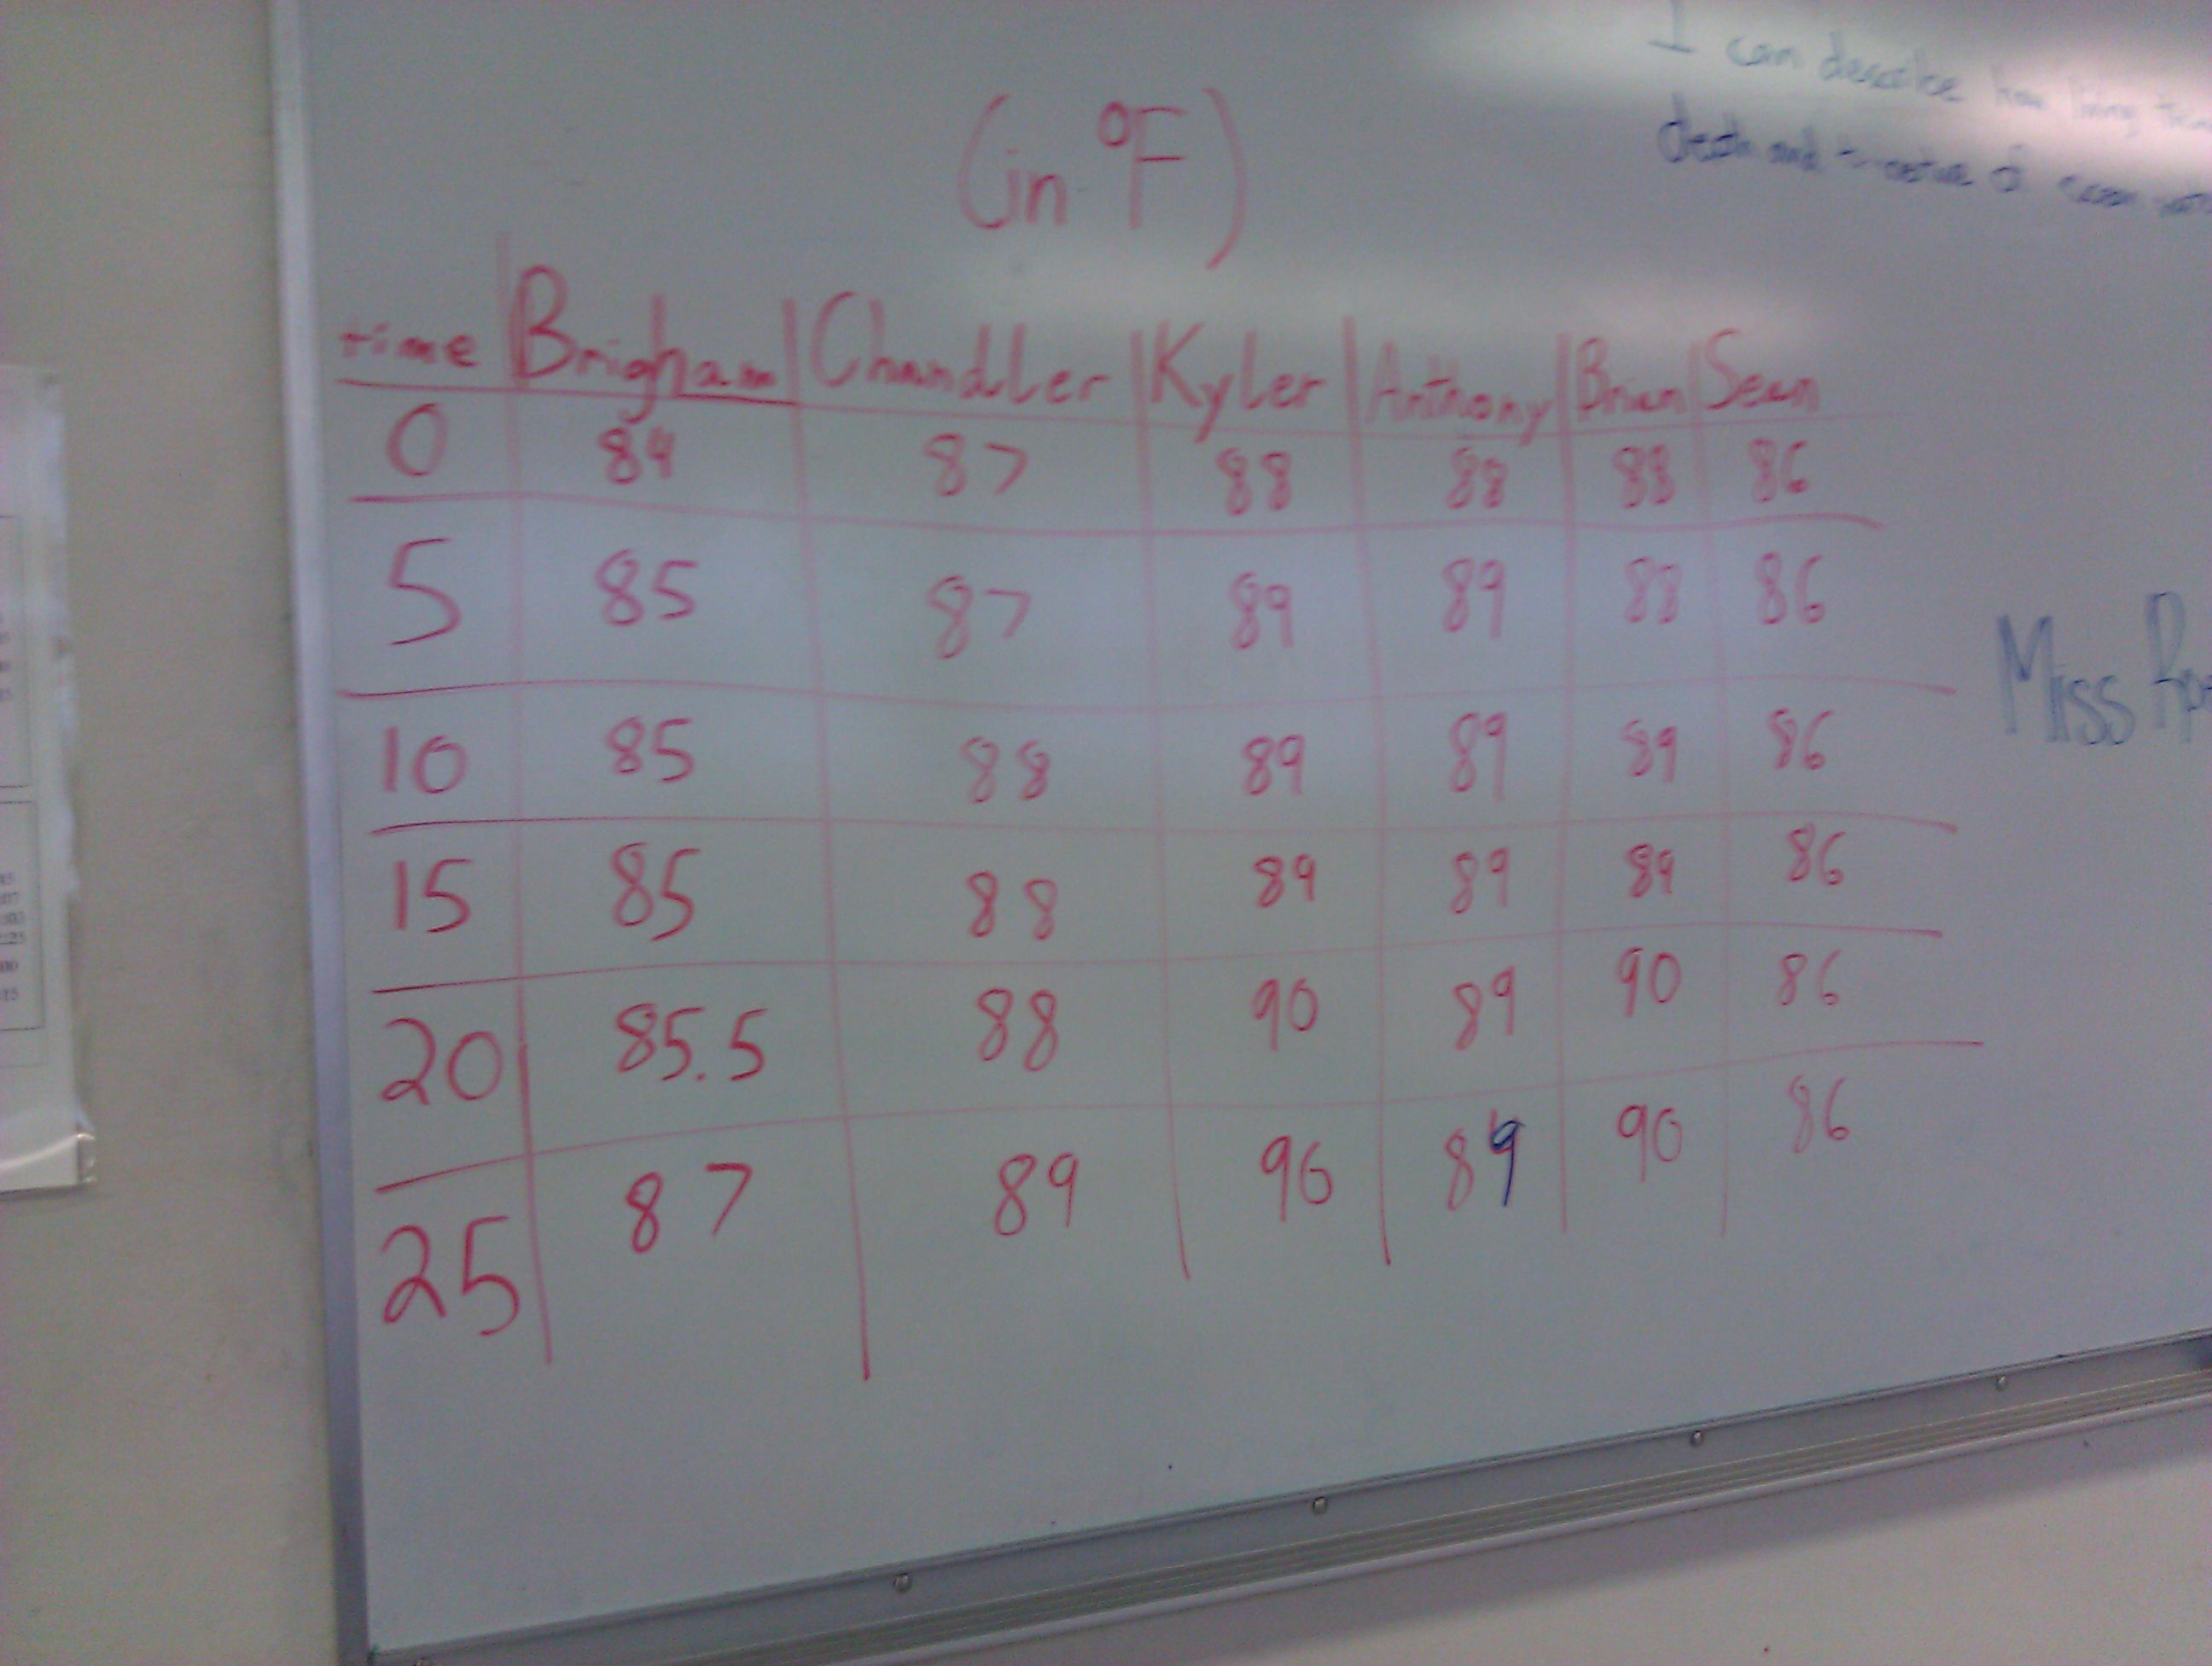 I can describe how living
death and
(in °F)
time Brigham Chandler Kyler Anthony Brian Sean
0 84 87 88 88 88 86
5 85 87 89 89 88 86
Miss
10 85 88 89 89 89 86
15 85 88 89 89 89 86
20 85.5 88 90 89 90 86
25 87 89 90 89 90 86